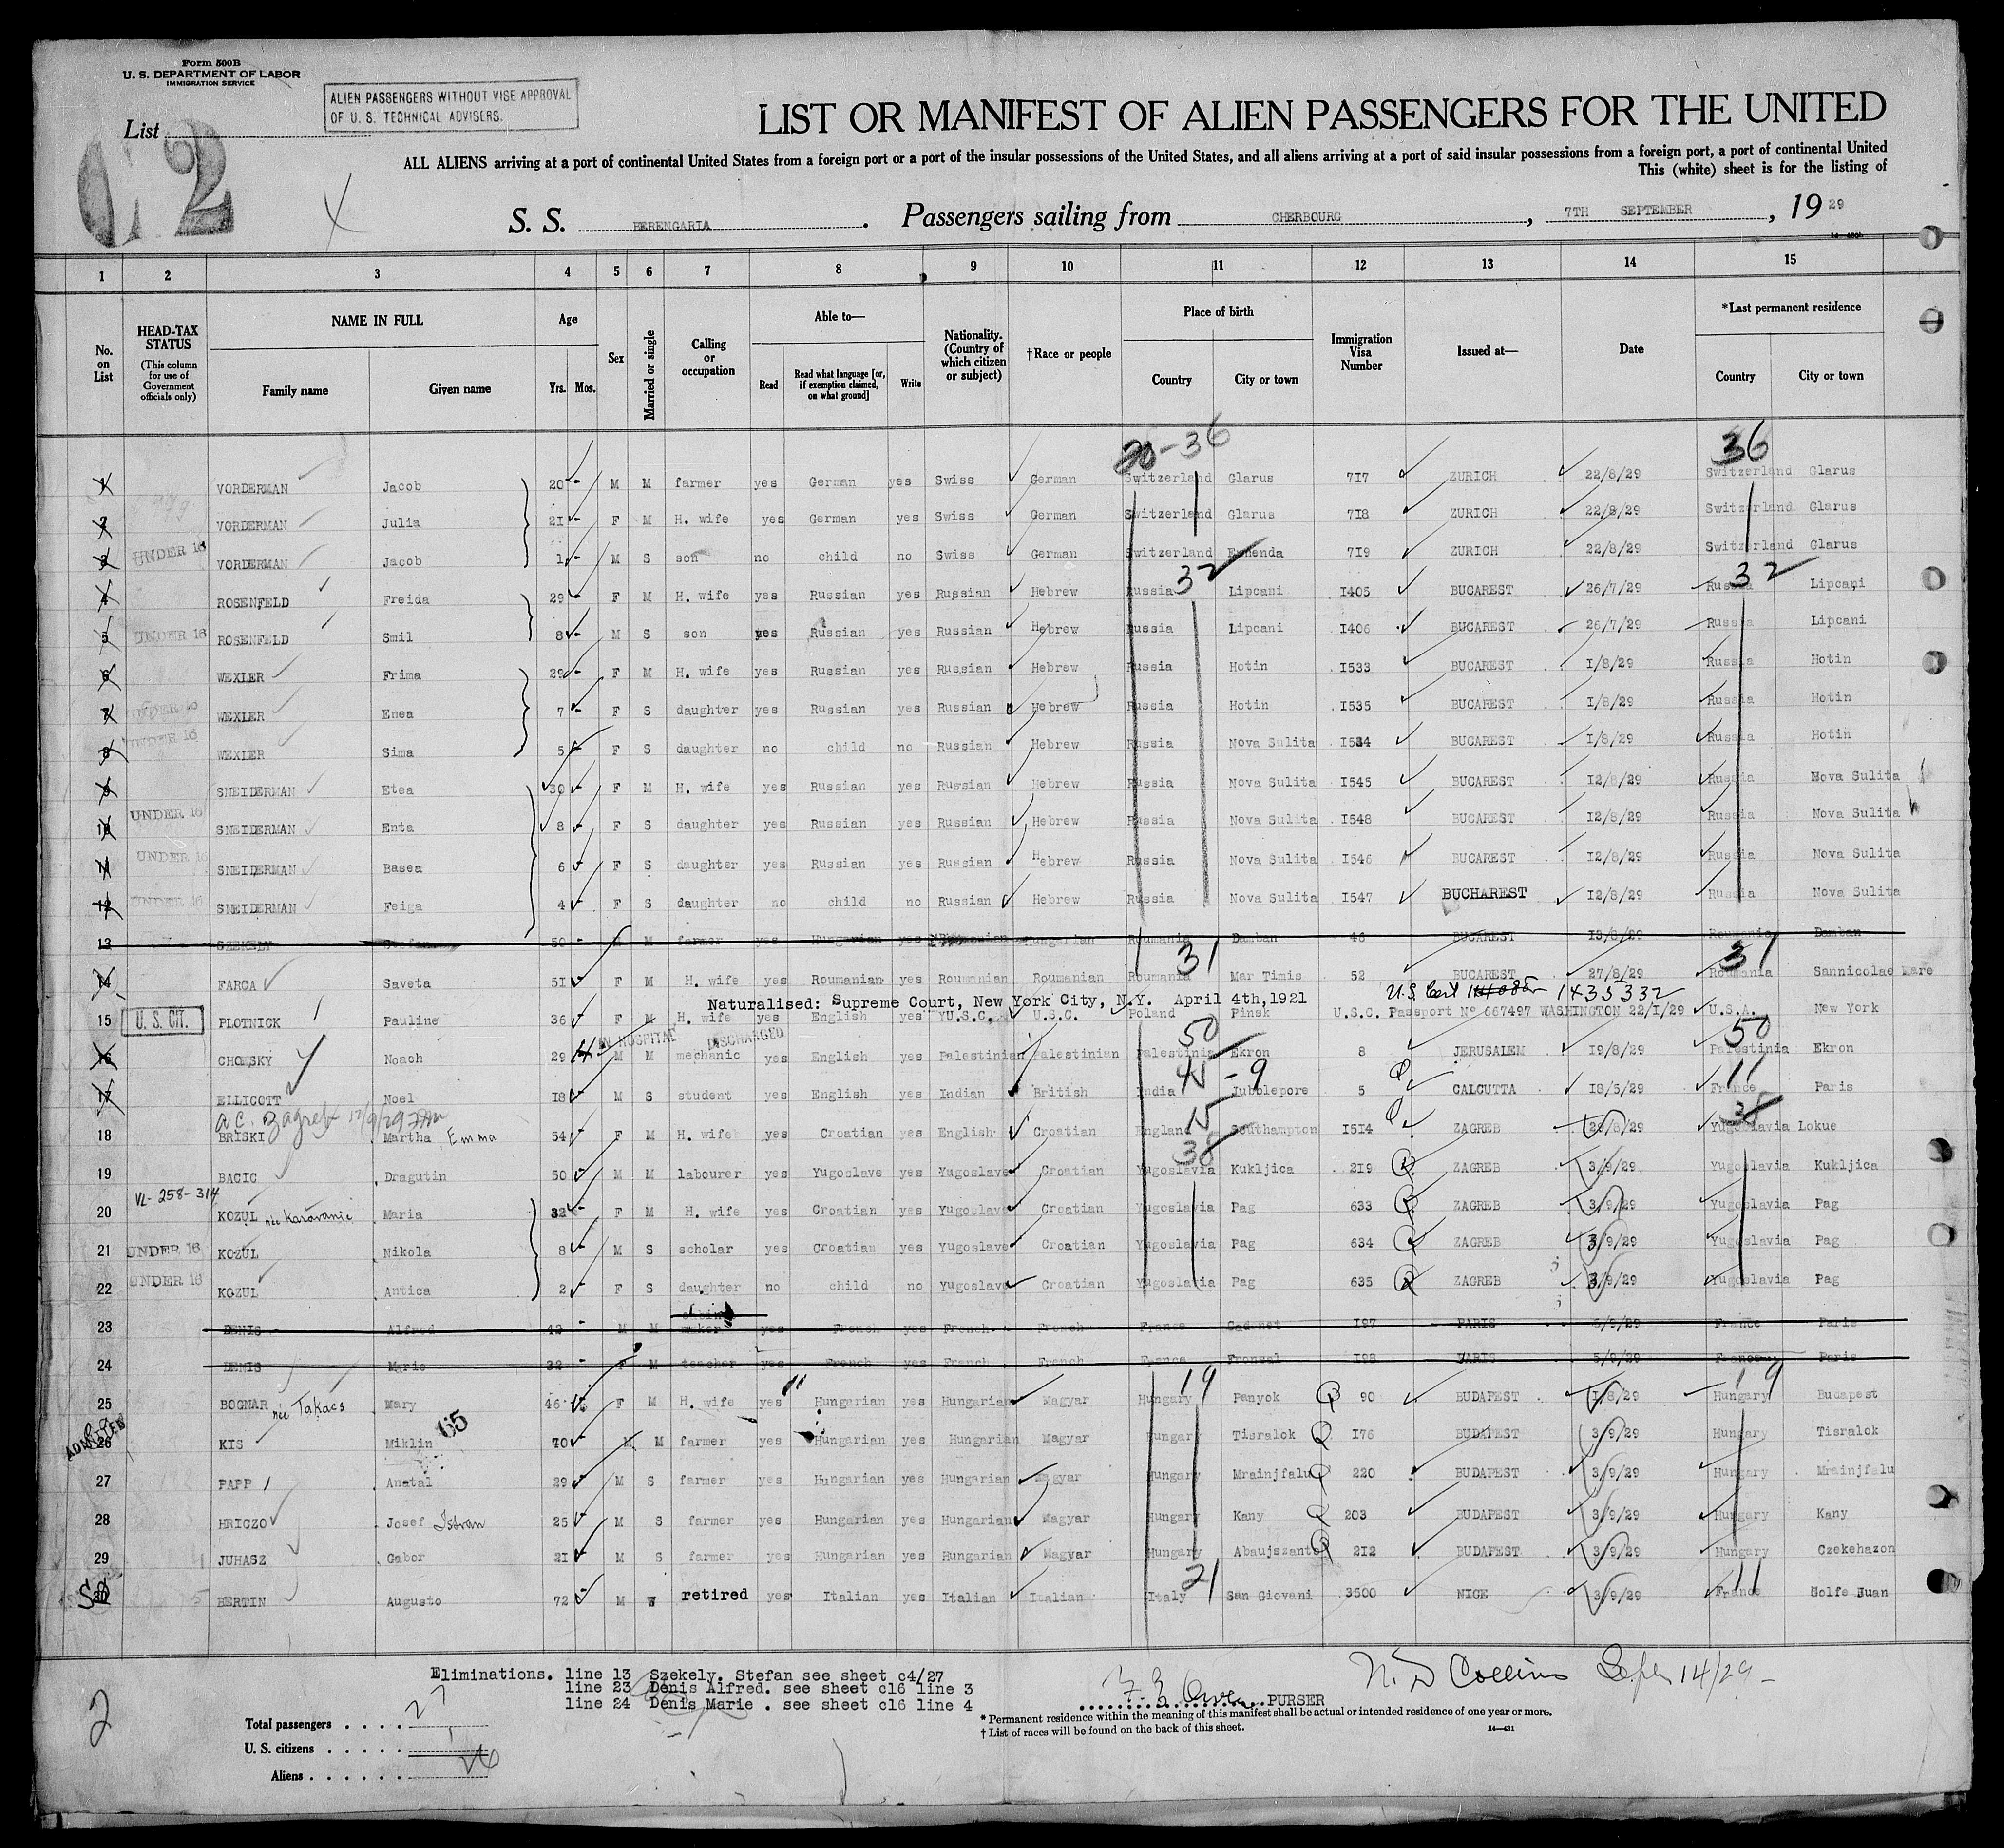 Form 500B
U. S. DEPARTMENT OF LABOR
IMMIGRATION SERVICE
ALIEN PASSENGERS WITHOUT VISE APPROVAL
OF U. S. TECHNICAL ADVISERS.
List
2
LIST OR MANIFEST OF ALIEN PASSENGERS FOR THE UNITED
ALL ALIENS arriving at a port of continental United States from a foreign port or a port of the insular possessions of the United States, and all aliens arriving at a port of said insular possessions from a foreign port, a port of continental United
This (white) sheet is for the listing of
S. S. BERENGARIA. Passengers sailing from CHERBOURG, 7TH SEPTEMBER, 19 29
1 2 3 4 5 6 7 8 9 10 11 12 13 14 15
No. on List
HEAD-TAX STATUS (This column for use of Government officials only)
NAME IN FULL Family name Given name
Age Yrs. Mos.
Sex
Married or single
Calling or occupation
Able to— Read Read what language [or, if exemption claimed, on what ground] Write
Nationality. (Country of which citizen or subject)
†Race or people
Place of birth Country City or town
Immigration Visa Number
Issued at—
Date
*Last permanent residence Country City or town
20-36 36
1 VORDERMAN Jacob 20 - M M farmer yes German yes Swiss German Switzerland Glarus 717 ZURICH 22/8/29 Switzerland Glarus
2 VORDERMAN Julia 21 - F M H. wife yes German yes Swiss German Switzerland Glarus 718 ZURICH 22/8/29 Switzerland Glarus
3 UNDER 16 VORDERMAN Jacob 1 - M S son no child no Swiss German Switzerland 719 ZURICH 22/8/29 Switzerland Glarus
32 32
4 ROSENFELD Freida 29 - F M H. wife yes Russian yes Russian Hebrew Russia Lipcani 1405 BUCAREST 26/7/29 Russia Lipcani
5 UNDER 16 ROSENFELD Smil 8 - M S son yes Russian yes Russian Hebrew Russia Lipcani 1406 BUCAREST 26/7/29 Russia Lipcani
6 WEXLER Frima 29 - F M H. wife yes Russian yes Russian Hebrew Russia Hotin 1533 BUCAREST 1/8/29 Russia Hotin
7 UNDER 16 WEXLER Enea 7 - F S daughter yes Russian yes Russian Hebrew Russia Hotin 1535 BUCAREST 1/8/29 Russia Hotin
8 UNDER 16 WEXLER Sima 5 - F S daughter no child no Russian Hebrew Russia Nova Sulita 1534 BUCAREST 1/8/29 Russia Hotin
9 SNEIDERMAN Etea 30 - F M H. wife yes Russian yes Russian Hebrew Russia Nova Sulita 1545 BUCAREST 12/8/29 Russia Nova Sulita
10 UNDER 16 SNEIDERMAN Enta 8 - F S daughter yes Russian yes Russian Hebrew Russia Nova Sulita 1548 BUCAREST 12/8/29 Russia Nova Sulita
11 UNDER 16 SNEIDERMAN Basea 6 - F S daughter yes Russian yes Russian Hebrew Russia Nova Sulita 1546 BUCAREST 12/8/29 Russia Nova Sulita
12 UNDER 16 SNEIDERMAN Feiga 4 - F S daughter no child no Russian Hebrew Russia Nova Sulita 1547 BUCHAREST 12/8/29 Russia Nova Sulita
13 SZEKELY Stefan 50 - M M farmer yes Hungarian yes Hungarian Roumania Damban 46 BUCAREST 13/8/29 Roumania Damban
31 31
14 FARCA Saveta 51 - F M H. wife yes Roumanian yes Roumanian Roumanian Roumania Mar Timis 52 BUCAREST 27/8/29 Roumania Sannicolae Mare
Naturalised: Supreme Court, New York City, N.Y. April 4th, 1921 U.S. Cert 1435332
15 U. S. CIT. PLOTNICK Pauline 36 - F M H. wife yes English yes U.S.C. U.S.C. Poland Pinsk U.S.C. Passport No 667497 WASHINGTON 22/1/29 U.S.A. New York
IN HOSPITAL DISCHARGED 50 50
16 CHOMSKY Noach 29 - M M mechanic yes English yes Palestinian Palestinian Palestinia Ekron 8 JERUSALEM 19/8/29 Palestinia Ekron
45-9 11
17 ELLICOTT Noel 18 - M S student yes English yes Indian British India Jubblepore 5 CALCUTTA 18/5/29 France Paris
a.c. Zagreb 12/9/29 15 38
18 BRISKI Martha Emma 54 - F M H. wife yes Croatian yes English Croatian England Southampton 1514 ZAGREB 28/8/29 Yugoslavia Lokue
38
19 BACIC Dragutin 50 - M M labourer yes Yugoslave yes Yugoslave Croatian Yugoslavia Kukljica 219 ZAGREB 3/9/29 Yugoslavia Kukljica
VL-258-314
20 KOZUL née Karavanic Maria 32 - F M H. wife yes Croatian yes Yugoslave Croatian Yugoslavia Pag 633 ZAGREB 3/9/29 Yugoslavia Pag
21 UNDER 16 KOZUL Nikola 8 - M S scholar yes Croatian yes Yugoslave Croatian Yugoslavia Pag 634 ZAGREB 3/9/29 Yugoslavia Pag
22 UNDER 16 KOZUL Antica 2 - F S daughter no child no Yugoslave Croatian Yugoslavia Pag 635 ZAGREB 3/9/29 Yugoslavia Pag
23 DENIS Alfred 43 - M M cabinet maker yes French yes French French France Cadenet 197 PARIS 5/9/29 France Paris
24 DENIS Marie 32 - F M teacher yes French yes French French France Fronsal 198 PARIS 5/9/29 France Paris
19 19
25 BOGNAR née Takacs Mary 46 F M H. wife yes Hungarian yes Hungarian Magyar Hungary Panyok 90 BUDAPEST 1/8/29 Hungary Budapest
ADMITTED 65
26 KIS Miklin 70 - M M farmer yes Hungarian yes Hungarian Magyar Hungary Tisralok 176 BUDAPEST 3/9/29 Hungary Tisralok
27 PAPP Anatal 29 - M S farmer yes Hungarian yes Hungarian Magyar Hungary Mrainjfalu 220 BUDAPEST 3/9/29 Hungary Mrainjfalu
28 HRICZO Josef Istvan 25 - M S farmer yes Hungarian yes Hungarian Magyar Hungary Kany 203 BUDAPEST 3/9/29 Hungary Kany
29 JUHASZ Gabor 21 - M S farmer yes Hungarian yes Hungarian Magyar Hungary Abaujszanto 212 BUDAPEST 3/9/29 Hungary Czekehazon
21 11
30 BERTIN Augusto 72 - M W retired yes Italian yes Italian Italian Italy San Giovani 3500 NICE 3/9/29 France Golfe Juan
Eliminations. line 13 Szekely. Stefan see sheet c4/27
line 23 Denis Alfred. see sheet c16 line 3
line 24 Denis Marie . see sheet c16 line 4
PURSER
N. D Collins Sept 14/29
* Permanent residence within the meaning of this manifest shall be actual or intended residence of one year or more.
† List of races will be found on the back of this sheet.
14—431
2
Total passengers . . . . 27
U. S. citizens . . . . . 1
Aliens . . . . . . 26